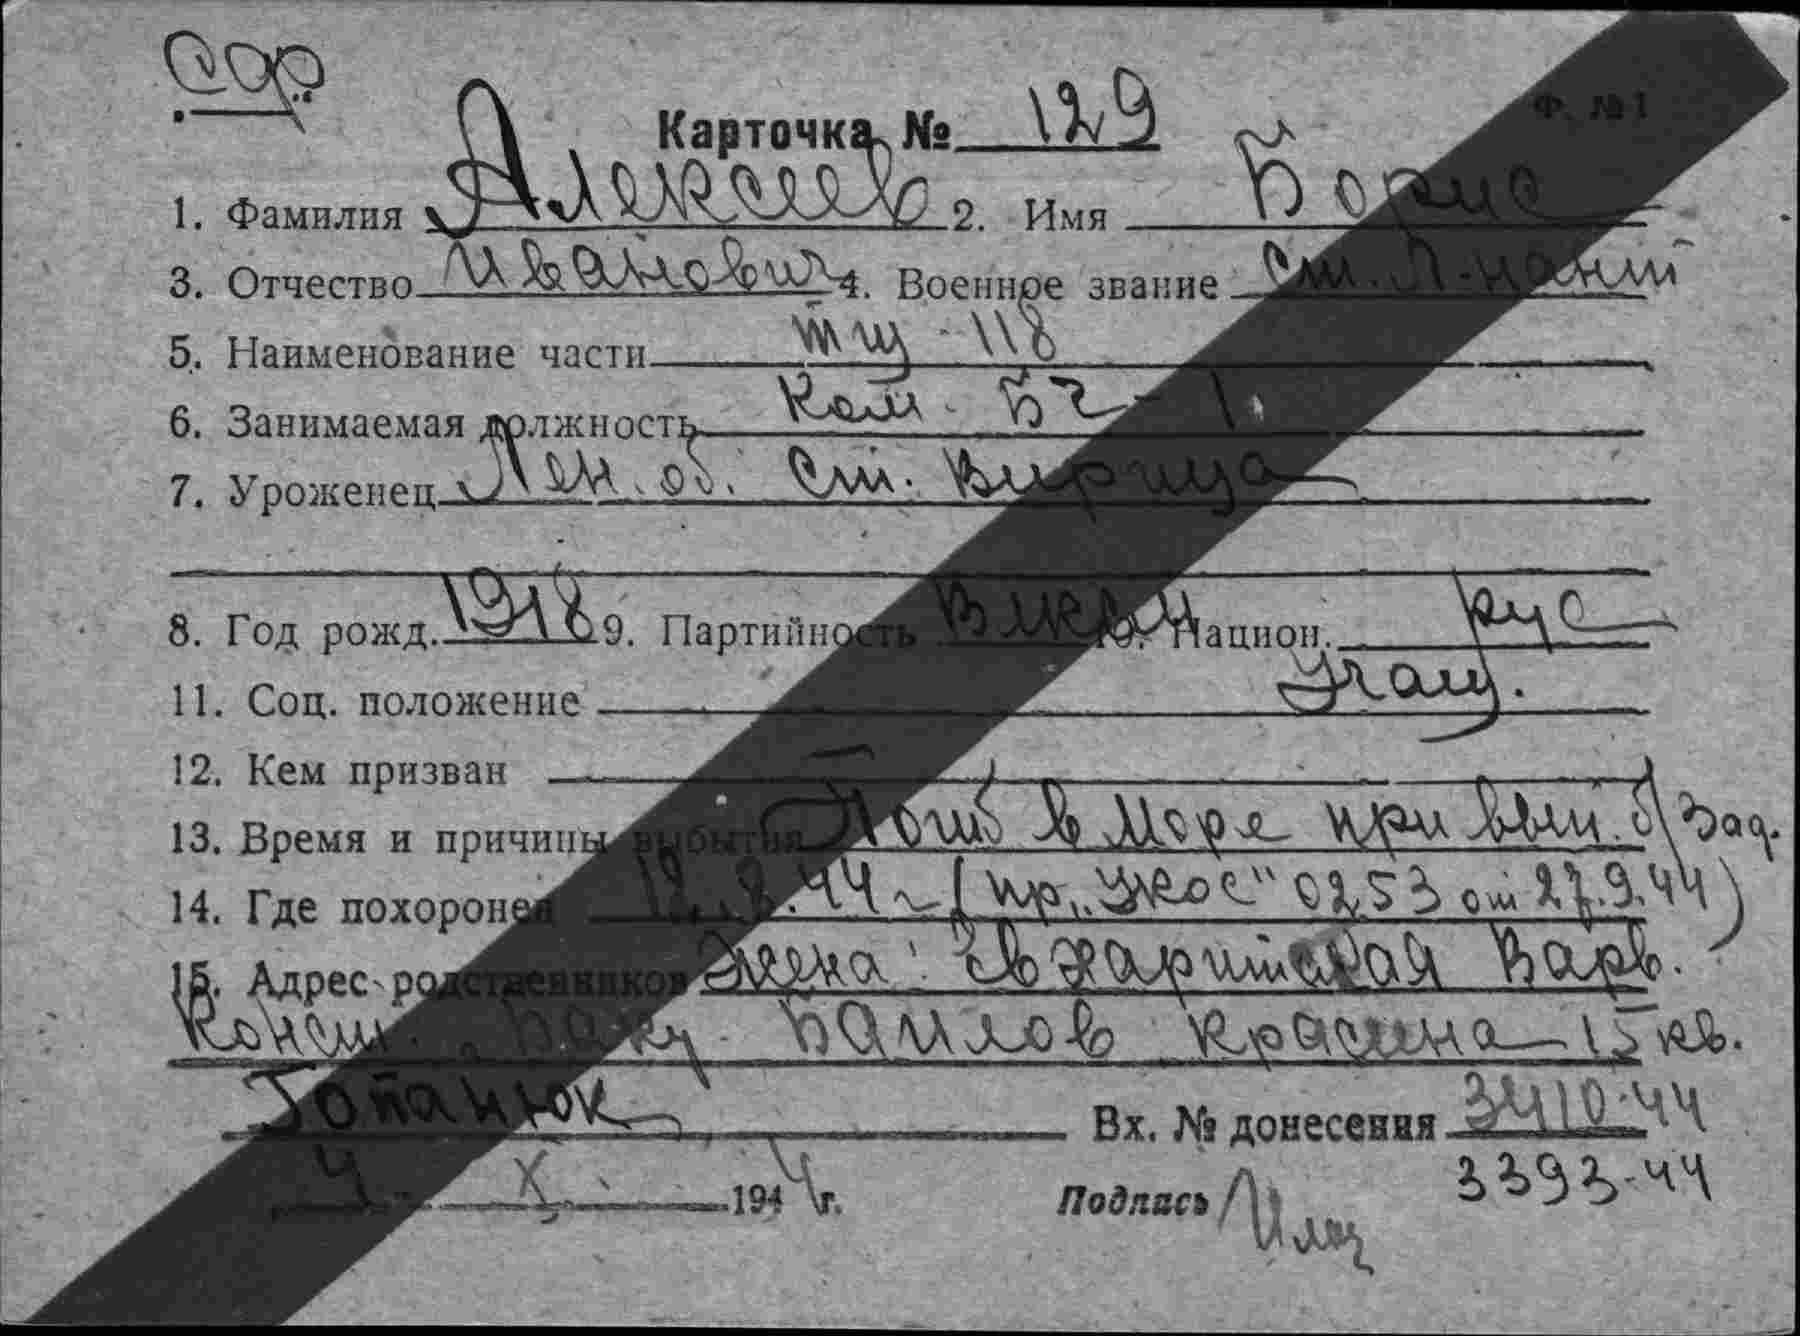 сдр
Ф. № 1
Карточка № 129
1. Фамилия Алексеев 2. Имя Борис
3. Отчество Иванович 4. Военное звание Ст. Л-нант
5. Наименование части тщ - 118
6. Занимаемая должность Ком. БЧ - 1
7. Уроженец Лен. об. ст. Вырица
8. Год рожд. 1918 9. Партийность ВЛКСМ 10. Национ. рус
11. Соц. положение Учащ.
12. Кем призван
13. Время и причины выбытия Погиб в море при вып. б/зад.
14. Где похоронен 12.8.44 г (пр. „Укос" 0253 от 27.9.44)
15. Адрес родственников Жена: Евхаритская Варв.
Конст. Баку Баилов Красина 15 кв.
Гопанюк Вх. № донесения 3410-44
4 X 1944 г. Подпись 3393-44